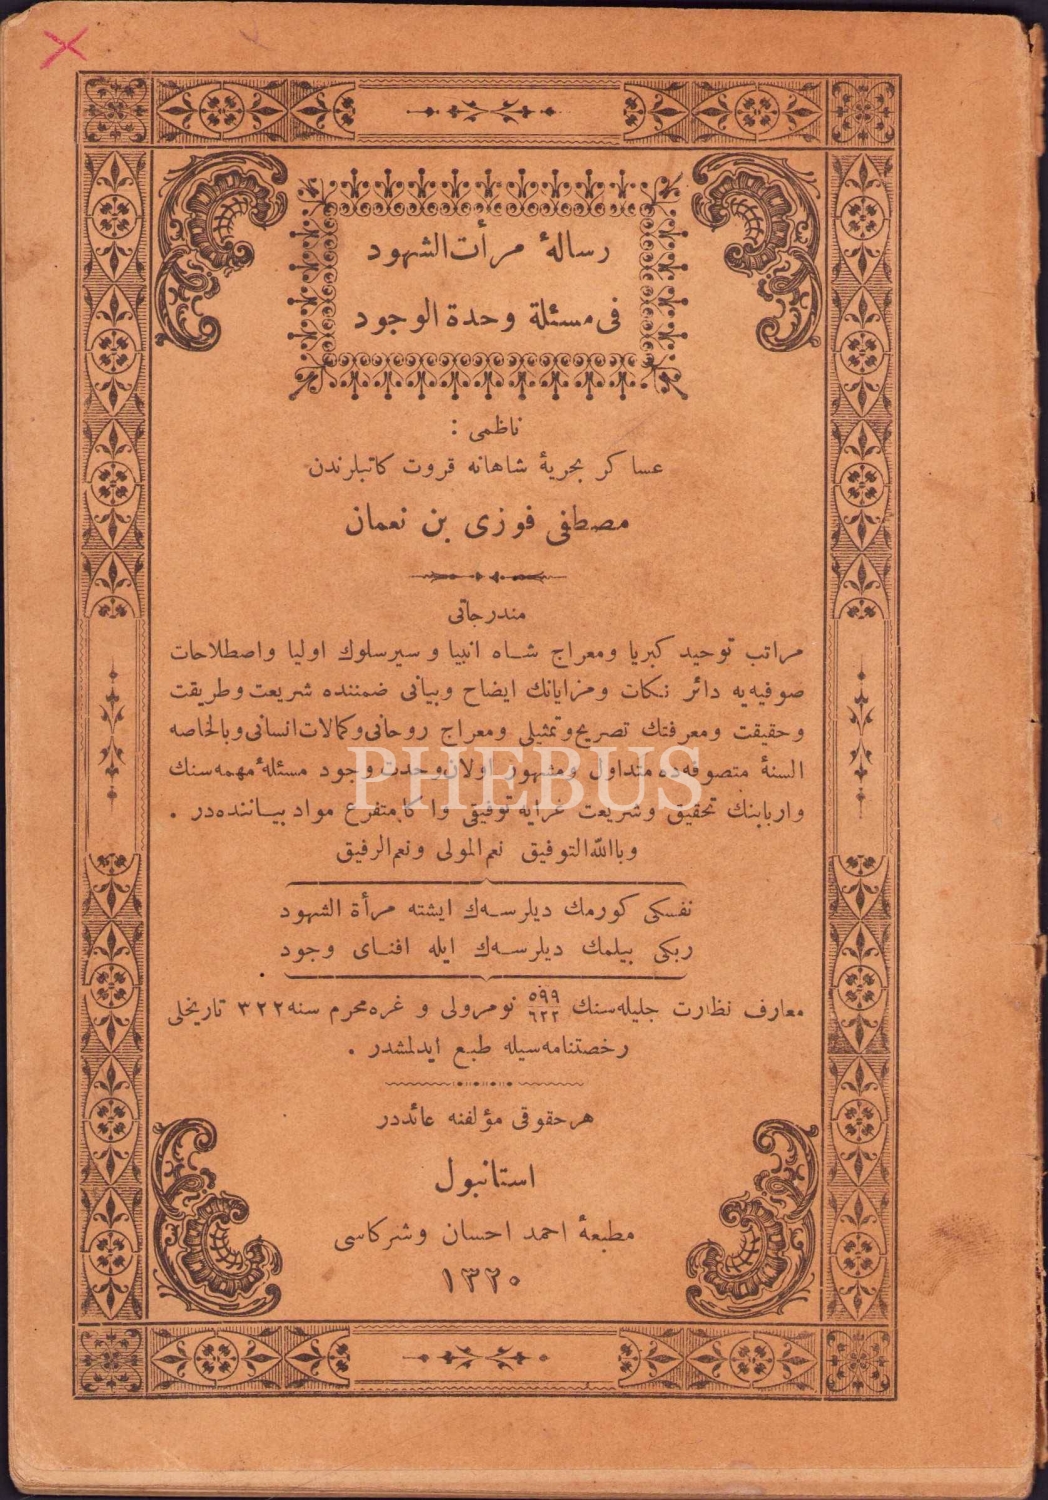 رسالۀ مرأت الشهود
فی مسئلة وحدة الوجود
ناظمی :
عساكر بحريۀ شاهانه قروت كاتبلرندن
مصطفی فوزی بن نعمان
مندرجاتی
مراتب توحيد كبريا ومعراج شـاه انبيا و سير سلوك اوليا واصطلاحات
صوفيه‌يه دائر نـكات ومزايانك ايضاح وبيانی ضمننده شريعت وطريقت
وحقيقت ومعرفتك تصريح وتمثيلی ومعراج روحانی وكمالات انسانی وبالخاصه
السنۀ متصوفه‌ده متداول ومشهور اولان وحدت وجود مسئلۀ مهمه‌سنك
واربابنك تحقيق وشريعت غرايه توفيقی واكا متفرع مواد بيـاننده‌در .
وباالله التوفيق نعم المولی ونعم الرفيق
نفسكی كورمك ديلرسـه‌ك ايشته مرأة الشهود
ربكی بيلمك ديلرسـه‌ك ايله افنـای وجود
معارف نظارت جليله‌سنك ٥٩٩/٦٢٢ نومرولی و غره محرم سنه ٣٢٢ تاريخلی
رخصتنامه‌سيله طبع ايدلمشدر .
هر حقوقی مؤلفنه عائددر
استانبول
مطبعۀ احمد احسان وشركاسی
١٣٢٠
PHEBUS